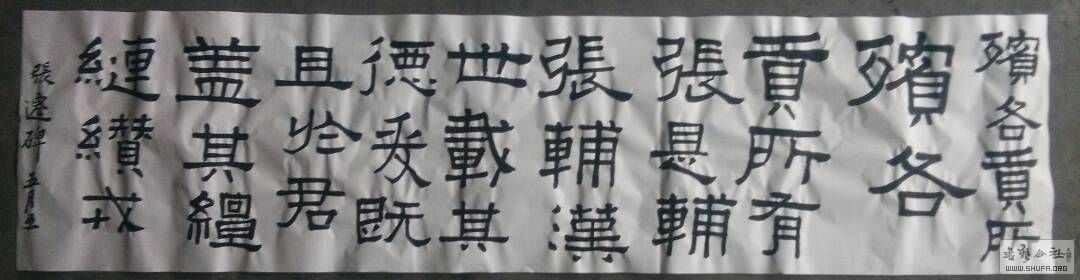 殯各貢所
殯各
貢所有
張是輔
張輔漢
世載其
德爰既
且於君
盖其繵
縺纘戎
張遷碑 五月五
WWW.SHUFA.ORG